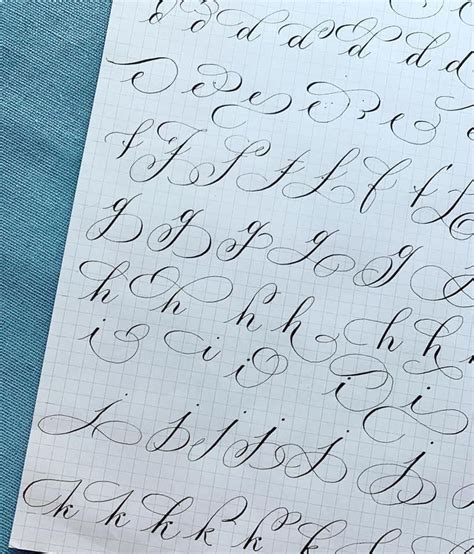 d d d d d d d
e e e e e e
f f f f f f f f
g g g g g g
h h h h h h h
i i i i i
j j j j j j
k k k k k k k